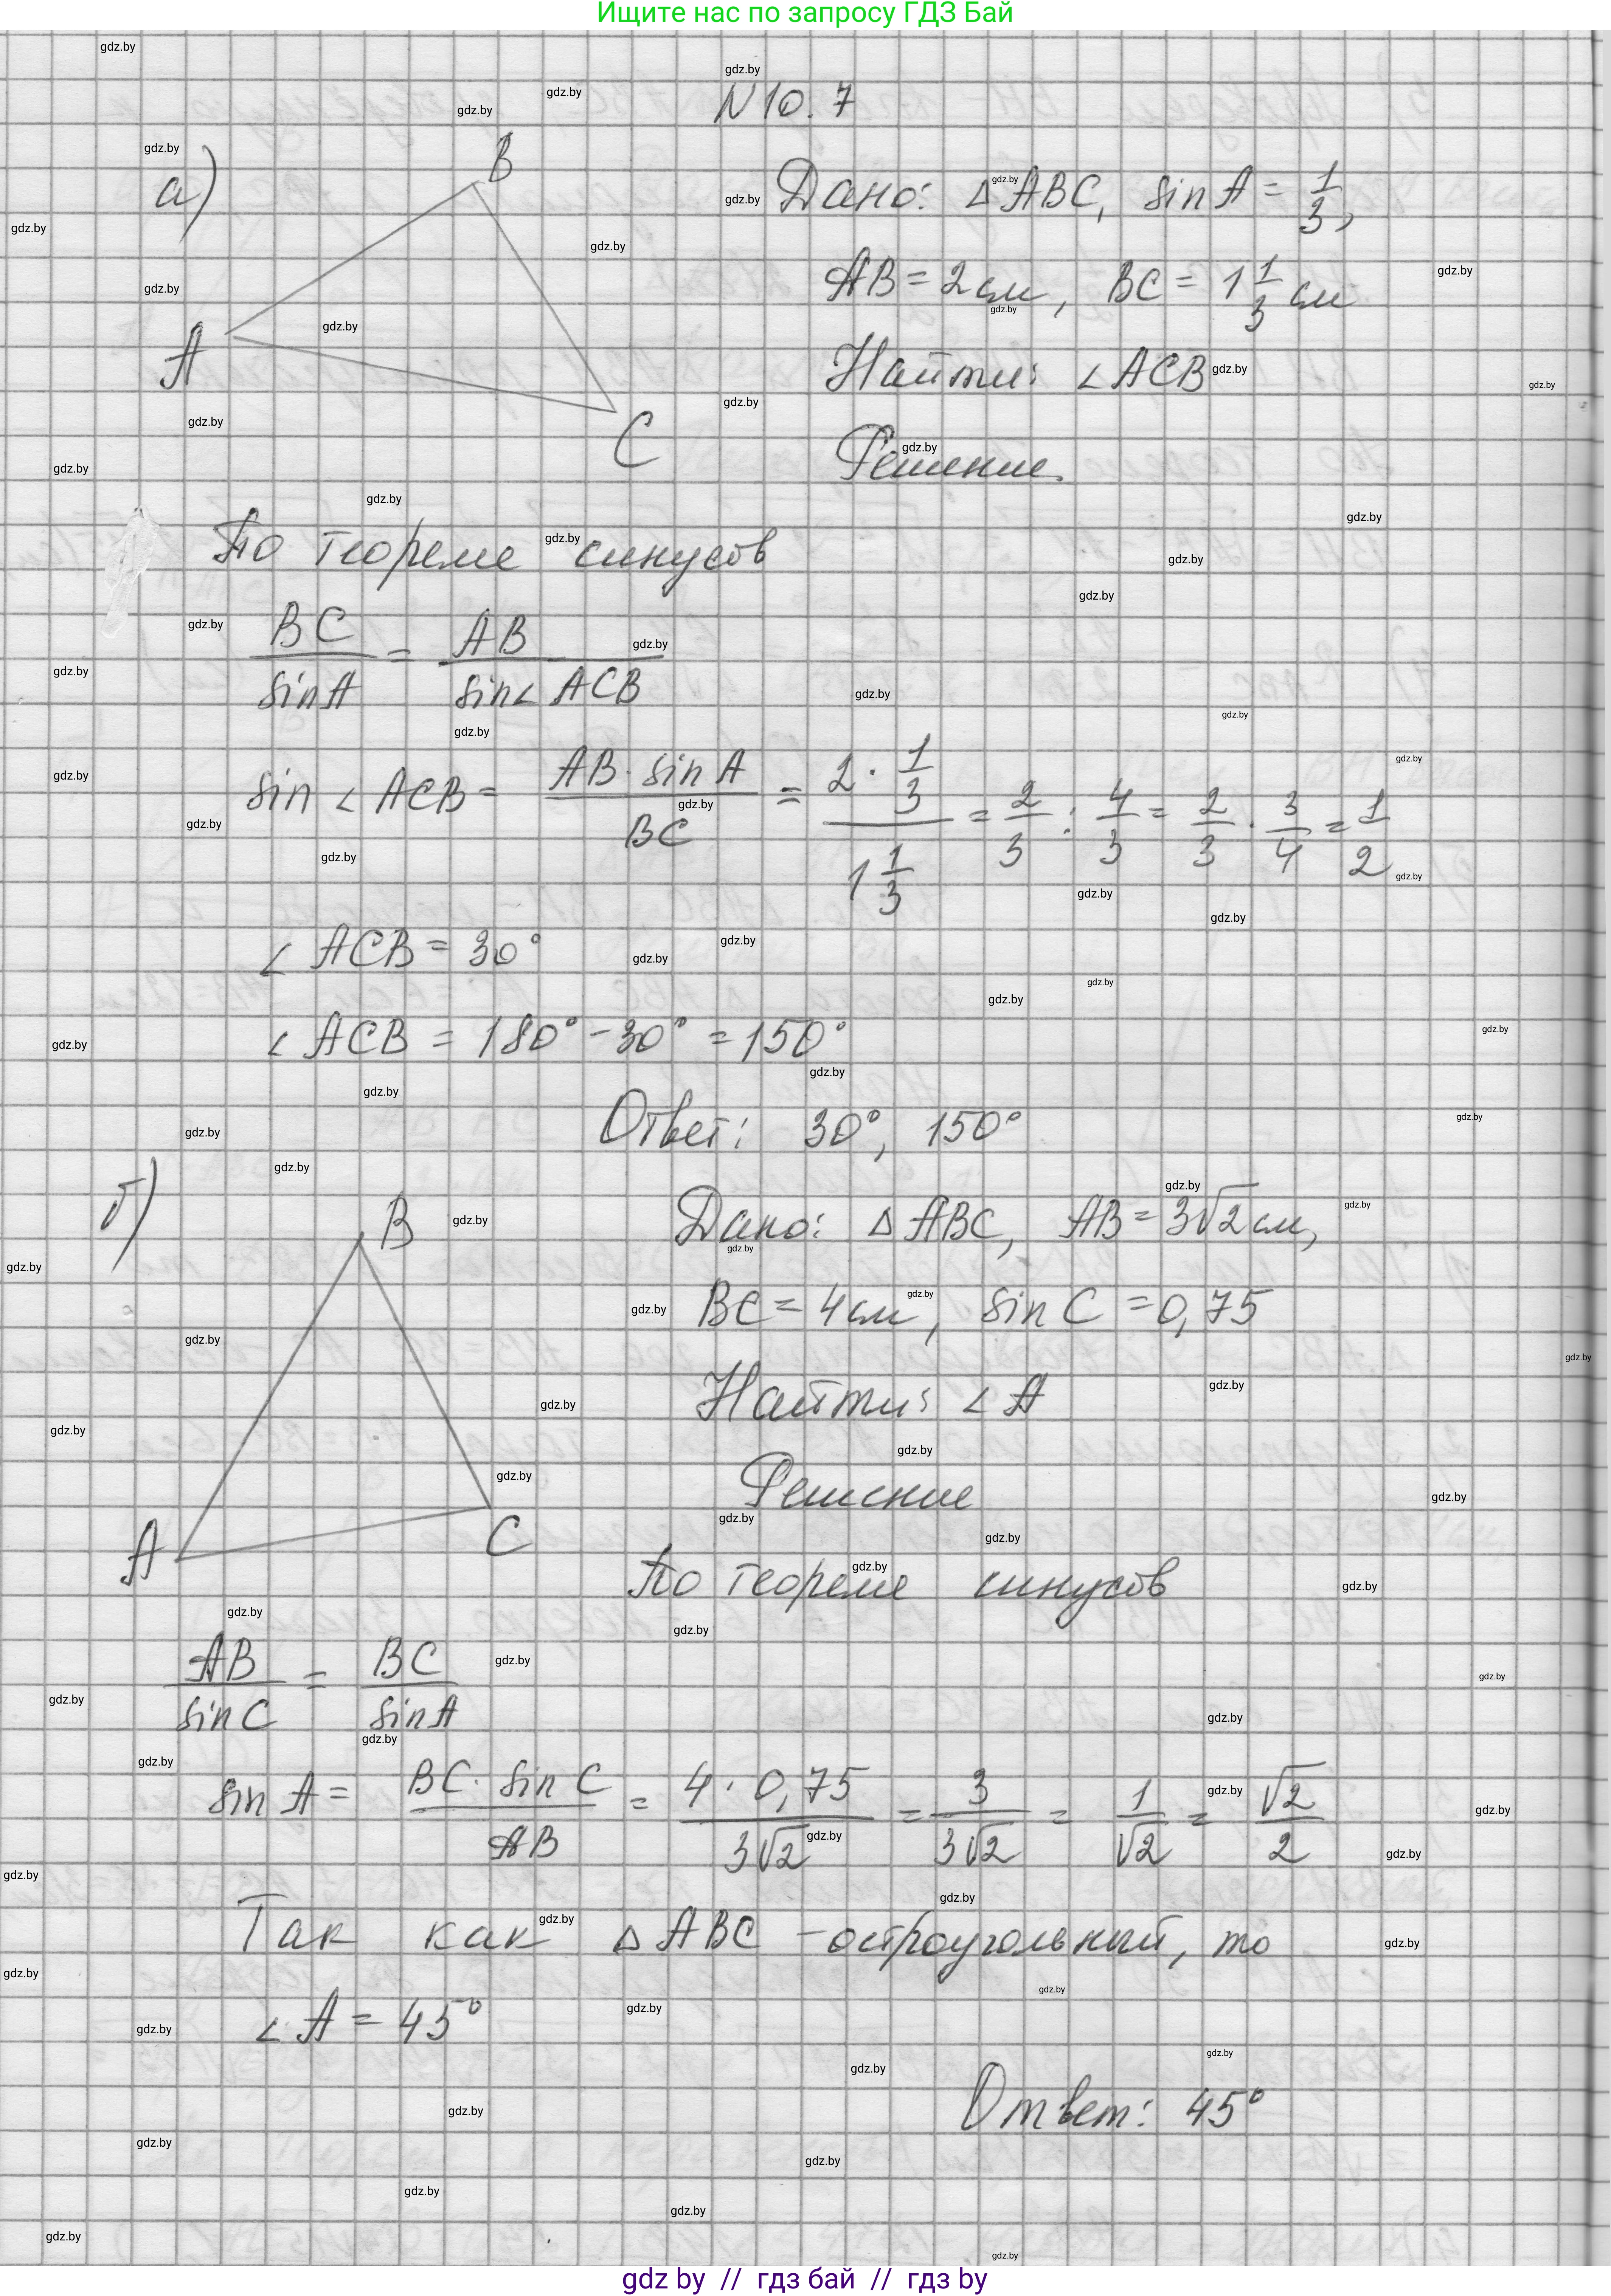 Ищите нас по запросу ГДЗ Бай
N 10.7
а)
B
A
C
Дано: △ABC, sin A = 1/3,
AB = 2 см, BC = 1 1/3 см
Найти: ∠ACB
Решение.
По теореме синусов
BC/sin A = AB/sin∠ACB
sin∠ACB = AB · sin A/BC = 2 · 1/3 / 1 1/3 = 2/3 : 4/3 = 2/3 · 3/4 = 1/2
∠ACB = 30°
∠ACB = 180° - 30° = 150°
Ответ: 30°, 150°
б)
B
A
C
Дано: △ABC, AB = 3√2 см,
BC = 4 см, sin C = 0,75
Найти: ∠A
Решение
По теореме синусов
AB/sin C = BC/sin A
sin A = BC · sin C/AB = 4 · 0,75/3√2 = 3/3√2 = 1/√2 = √2/2
Так как △ABC - остроугольный, то
∠A = 45°
Ответ: 45°
gdz by // гдз бай // гдз by